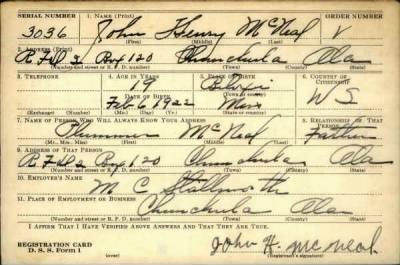 SERIAL NUMBER 1. NAME (Print) ORDER NUMBER
3036 John Henry McNeal V
(First) (Middle) (Last)
2. ADDRESS (Print)
R.F.D 2 Box 120 Chunchula Ala
(Number and street or R. F. D. number) (Town) (County) (State)
3. TELEPHONE 4. AGE IN YEARS 5. PLACE OF BIRTH 6. COUNTRY OF CITIZENSHIP
19 Biloxi
DATE OF BIRTH (Town or county)
Feb 6 1922 Miss U S
(Exchange) (Number) (Mo.) (Day) (Yr.) (State or country)
7. NAME OF PERSON WHO WILL ALWAYS KNOW YOUR ADDRESS 8. RELATIONSHIP OF THAT PERSON
McNeal Father
(Mr., Mrs., Miss) (First) (Middle) (Last)
9. ADDRESS OF THAT PERSON
R.F.D. 2 Box 120 Chunchula Ala
(Number and street or R. F. D. number) (Town) (County) (State)
10. EMPLOYER'S NAME
M C Stallworth
11. PLACE OF EMPLOYMENT OR BUSINESS
Chunchula Ala
(Number and street or R. F. D. number) (Town) (County) (State)
I AFFIRM THAT I HAVE VERIFIED ABOVE ANSWERS AND THAT THEY ARE TRUE.
REGISTRATION CARD
D. S. S. Form 1 John H. McNeal